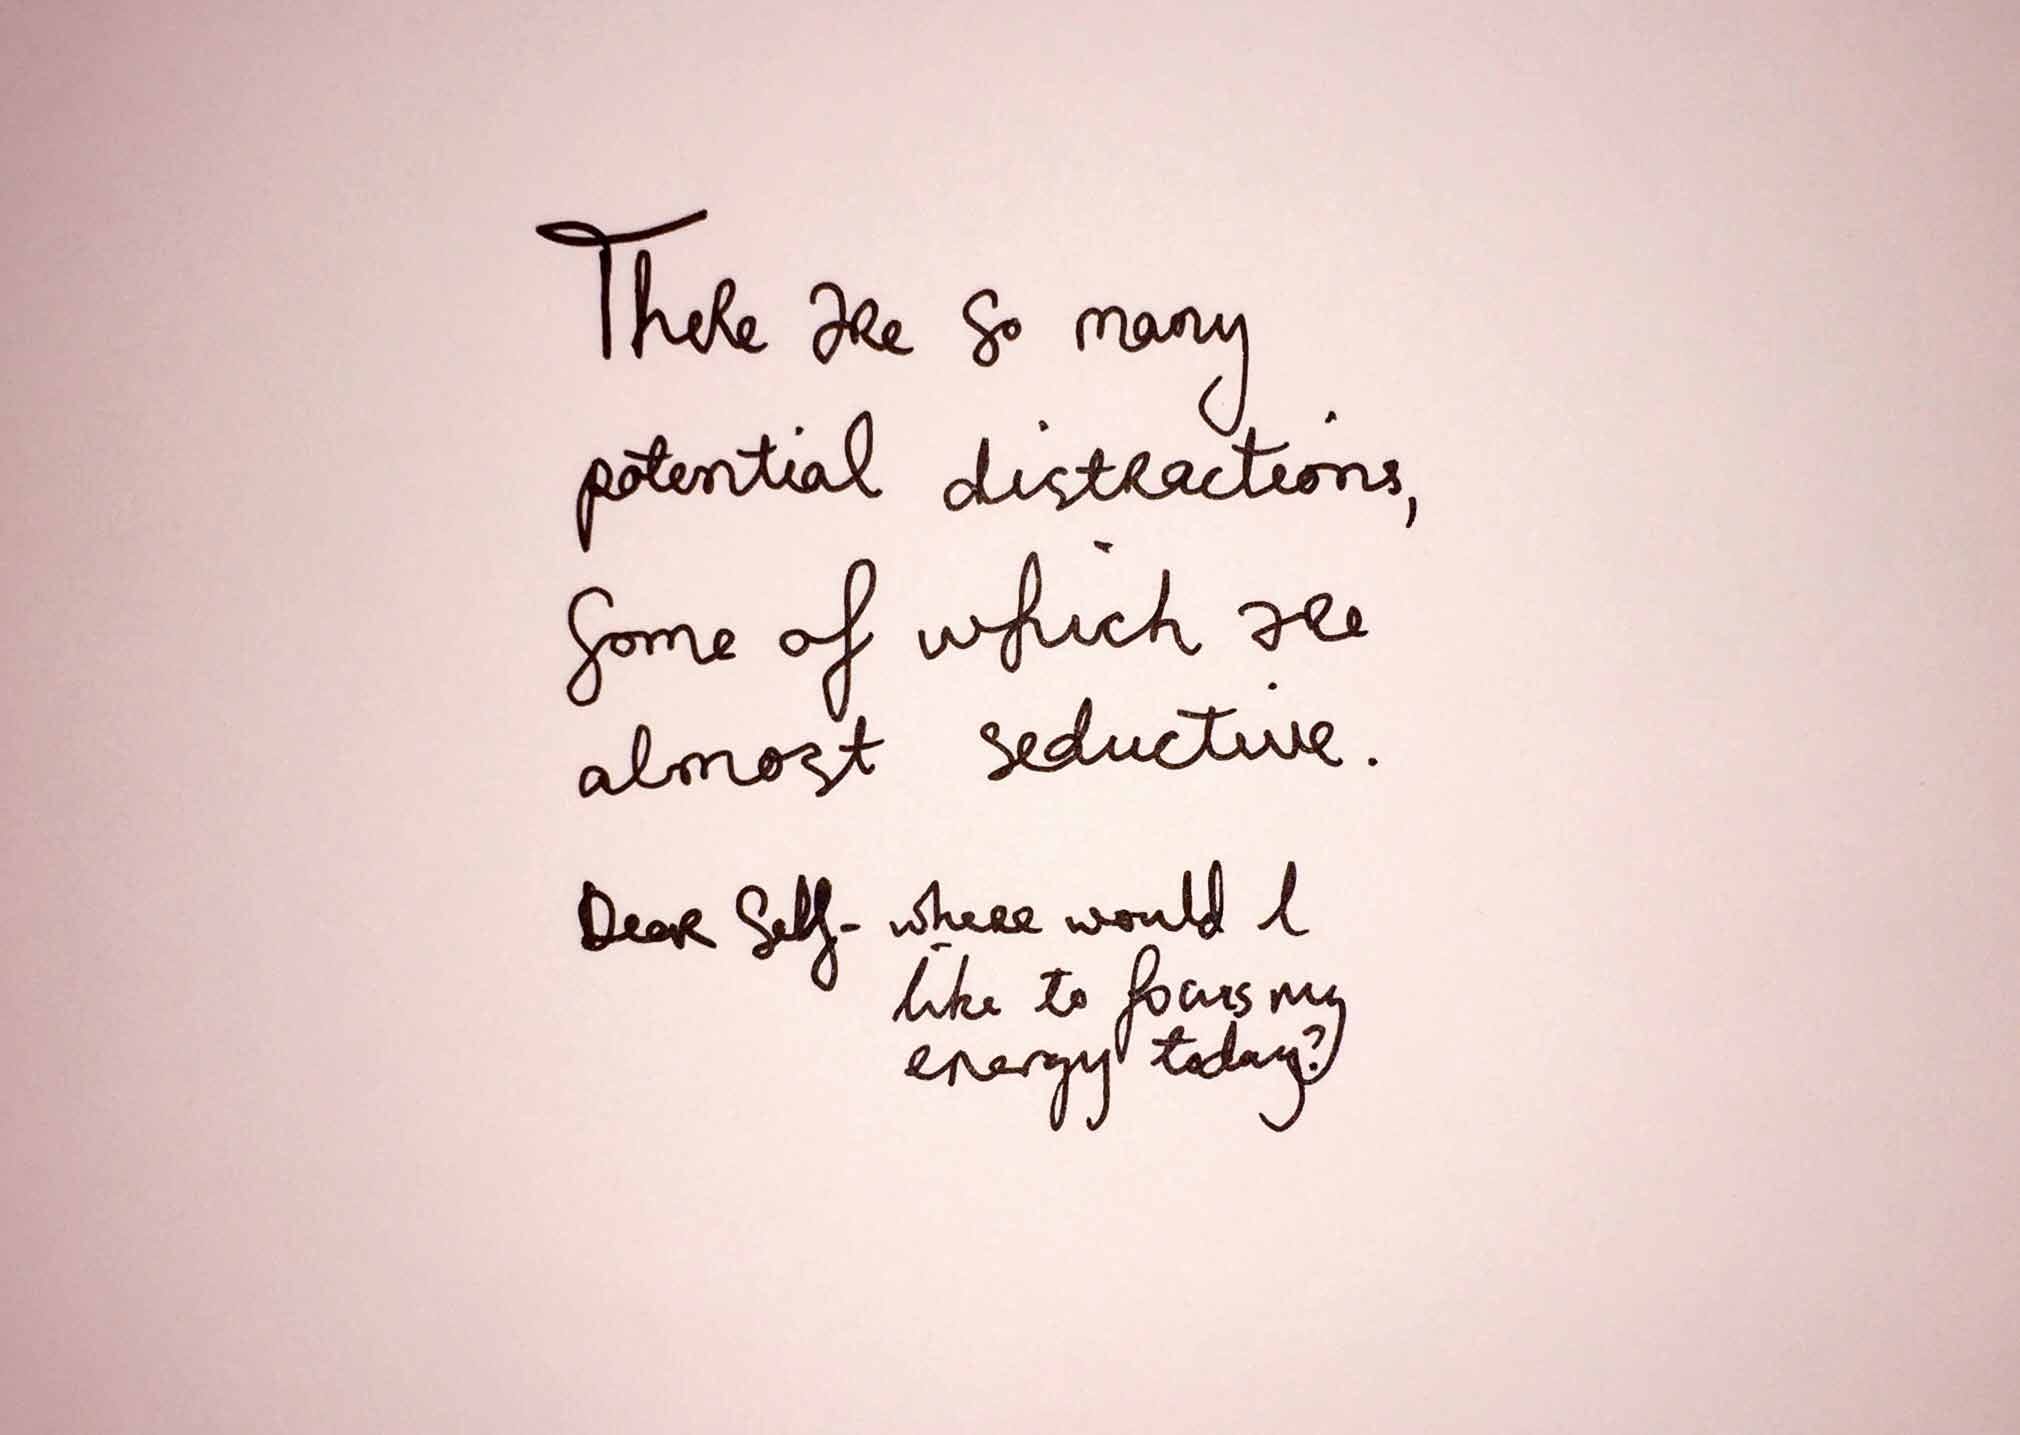 There are so many
potential distractions,
Some of which are
almost seductive.
Dear Self- where would I
like to focus my
energy today?